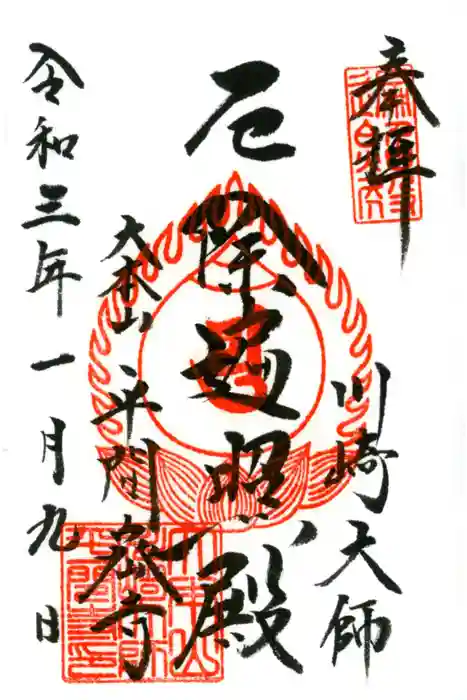 奉拝
川崎大師
厄除遍照殿
大本山平間寺
令和三年一月九日